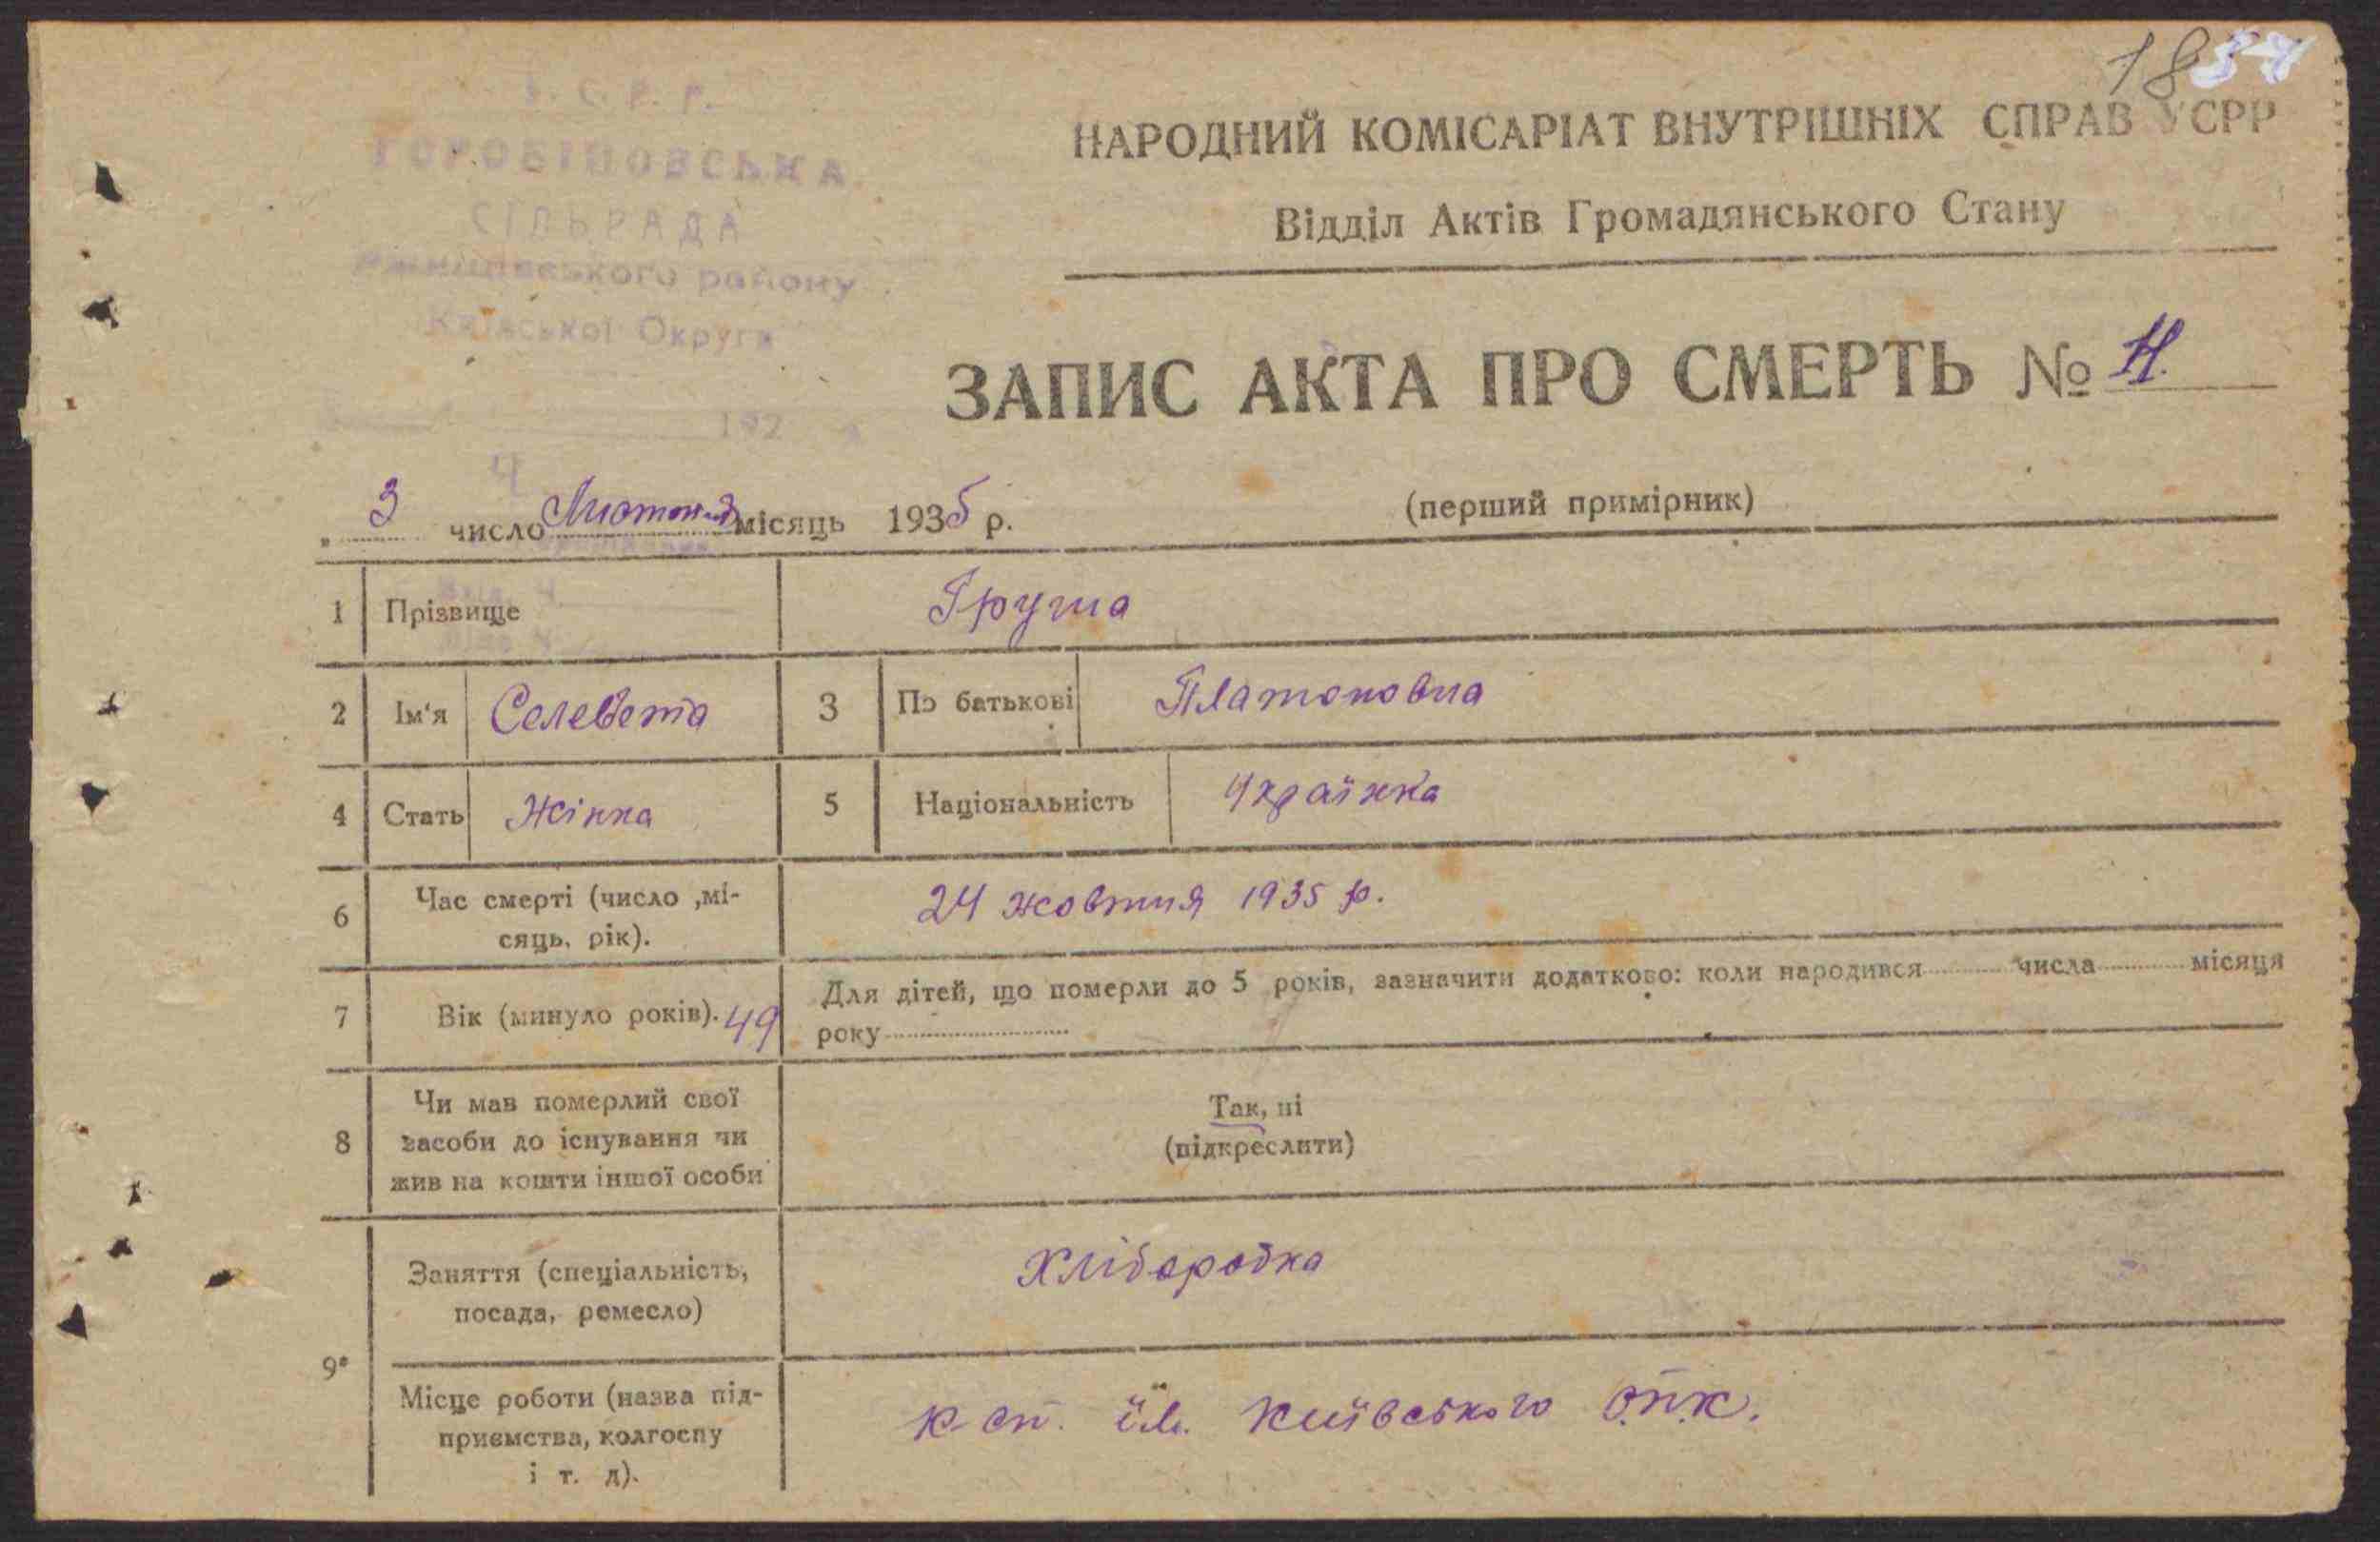 18
У. С. Р. Р.
СІЛЬРАДА
району
Київської Округи
192
НАРОДНИЙ КОМІСАРІАТ ВНУТРІШНІХ СПРАВ УСРР
Відділ Актів Громадянського Стану
ЗАПИС АКТА ПРО СМЕРТЬ №
„ 3 число Листопад місяць 1935 р.
(перший примірник)
1 Прізвище Груша
2 Ім'я Селевета 3 По батькові Платоновна
4 Стать Жінка 5 Національність Українка
6 Час смерті (число ,мі-
сяць, рік). 24 жовтня 1935 р.
7 Вік (минуло років). 49 Для дітей, що померли до 5 років, зазначити додатково: коли народився числа місяця
року
8 Чи мав померлий свої
засоби до існування чи
жив на кошти іншої особи
Так, ні
(підкреслити)
9 Заняття (спеціальність,
посада, ремесло)
Хліборобка
Місце роботи (назва під-
приємства, колгоспу
і т. д).
к-сп. ім. Київського О.П.К.